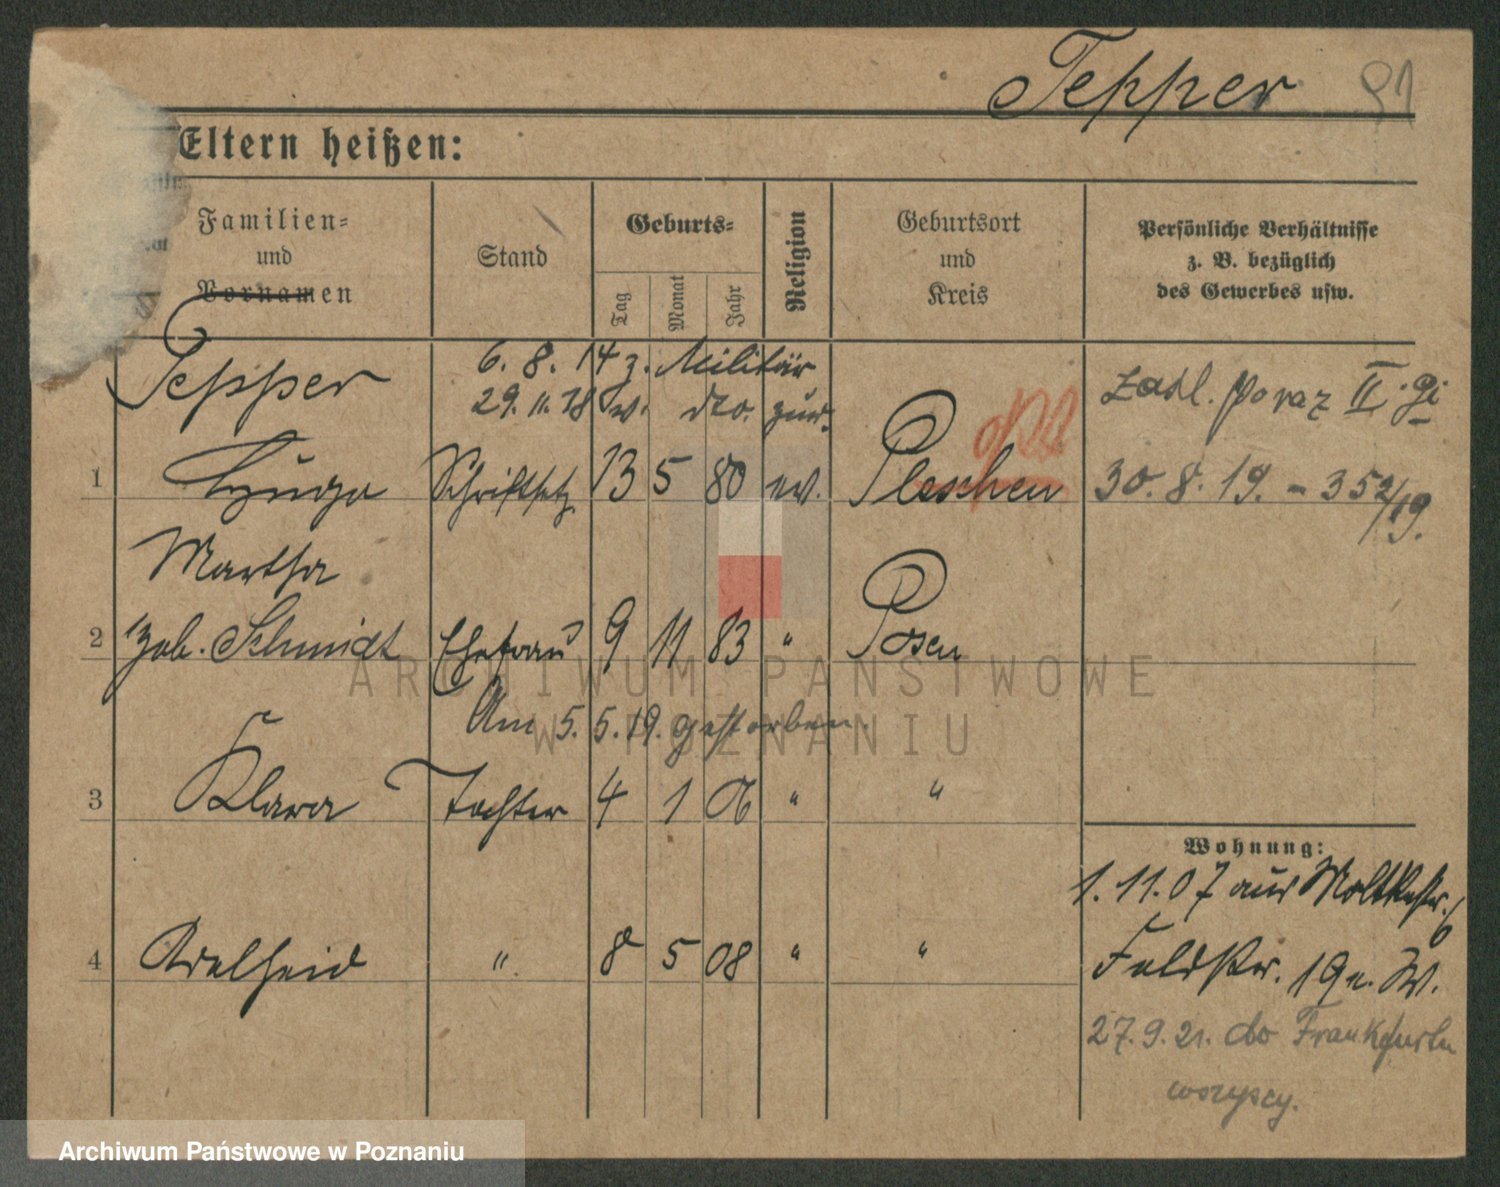 Tepper 91
Eltern heißen:
Familien-
und
Vornamen
Stand
Geburts-
Tag
Monat
Jahr
Religion
Geburtsort
und
Kreis
Persönliche Verhältnisse
z. B. bezüglich
des Gewerbes usw.
6. 8. 14 z. Militär
Tepper
29. 11. 18 v. dto. zur.
1 Hugo Schriftsetz. 13 5 80 ev. Pleschen
30. 8. 19. - 352/19.
Martha
2 geb. Schmidt Ehefrau 9 11 83 " Posen
Am 5. 5. 19. gestorben.
3 Klara Tochter 4 1 06 " "
4 Adelheid " 8 5 08 " "
Wohnung:
1. 11. 07 aus Moltkestr. 6
Feldstr. 19
27. 9. 21. do Frankfurtu
wszyscy.
ARCHIWUM PAŃSTWOWE
W POZNANIU
Archiwum Państwowe w Poznaniu